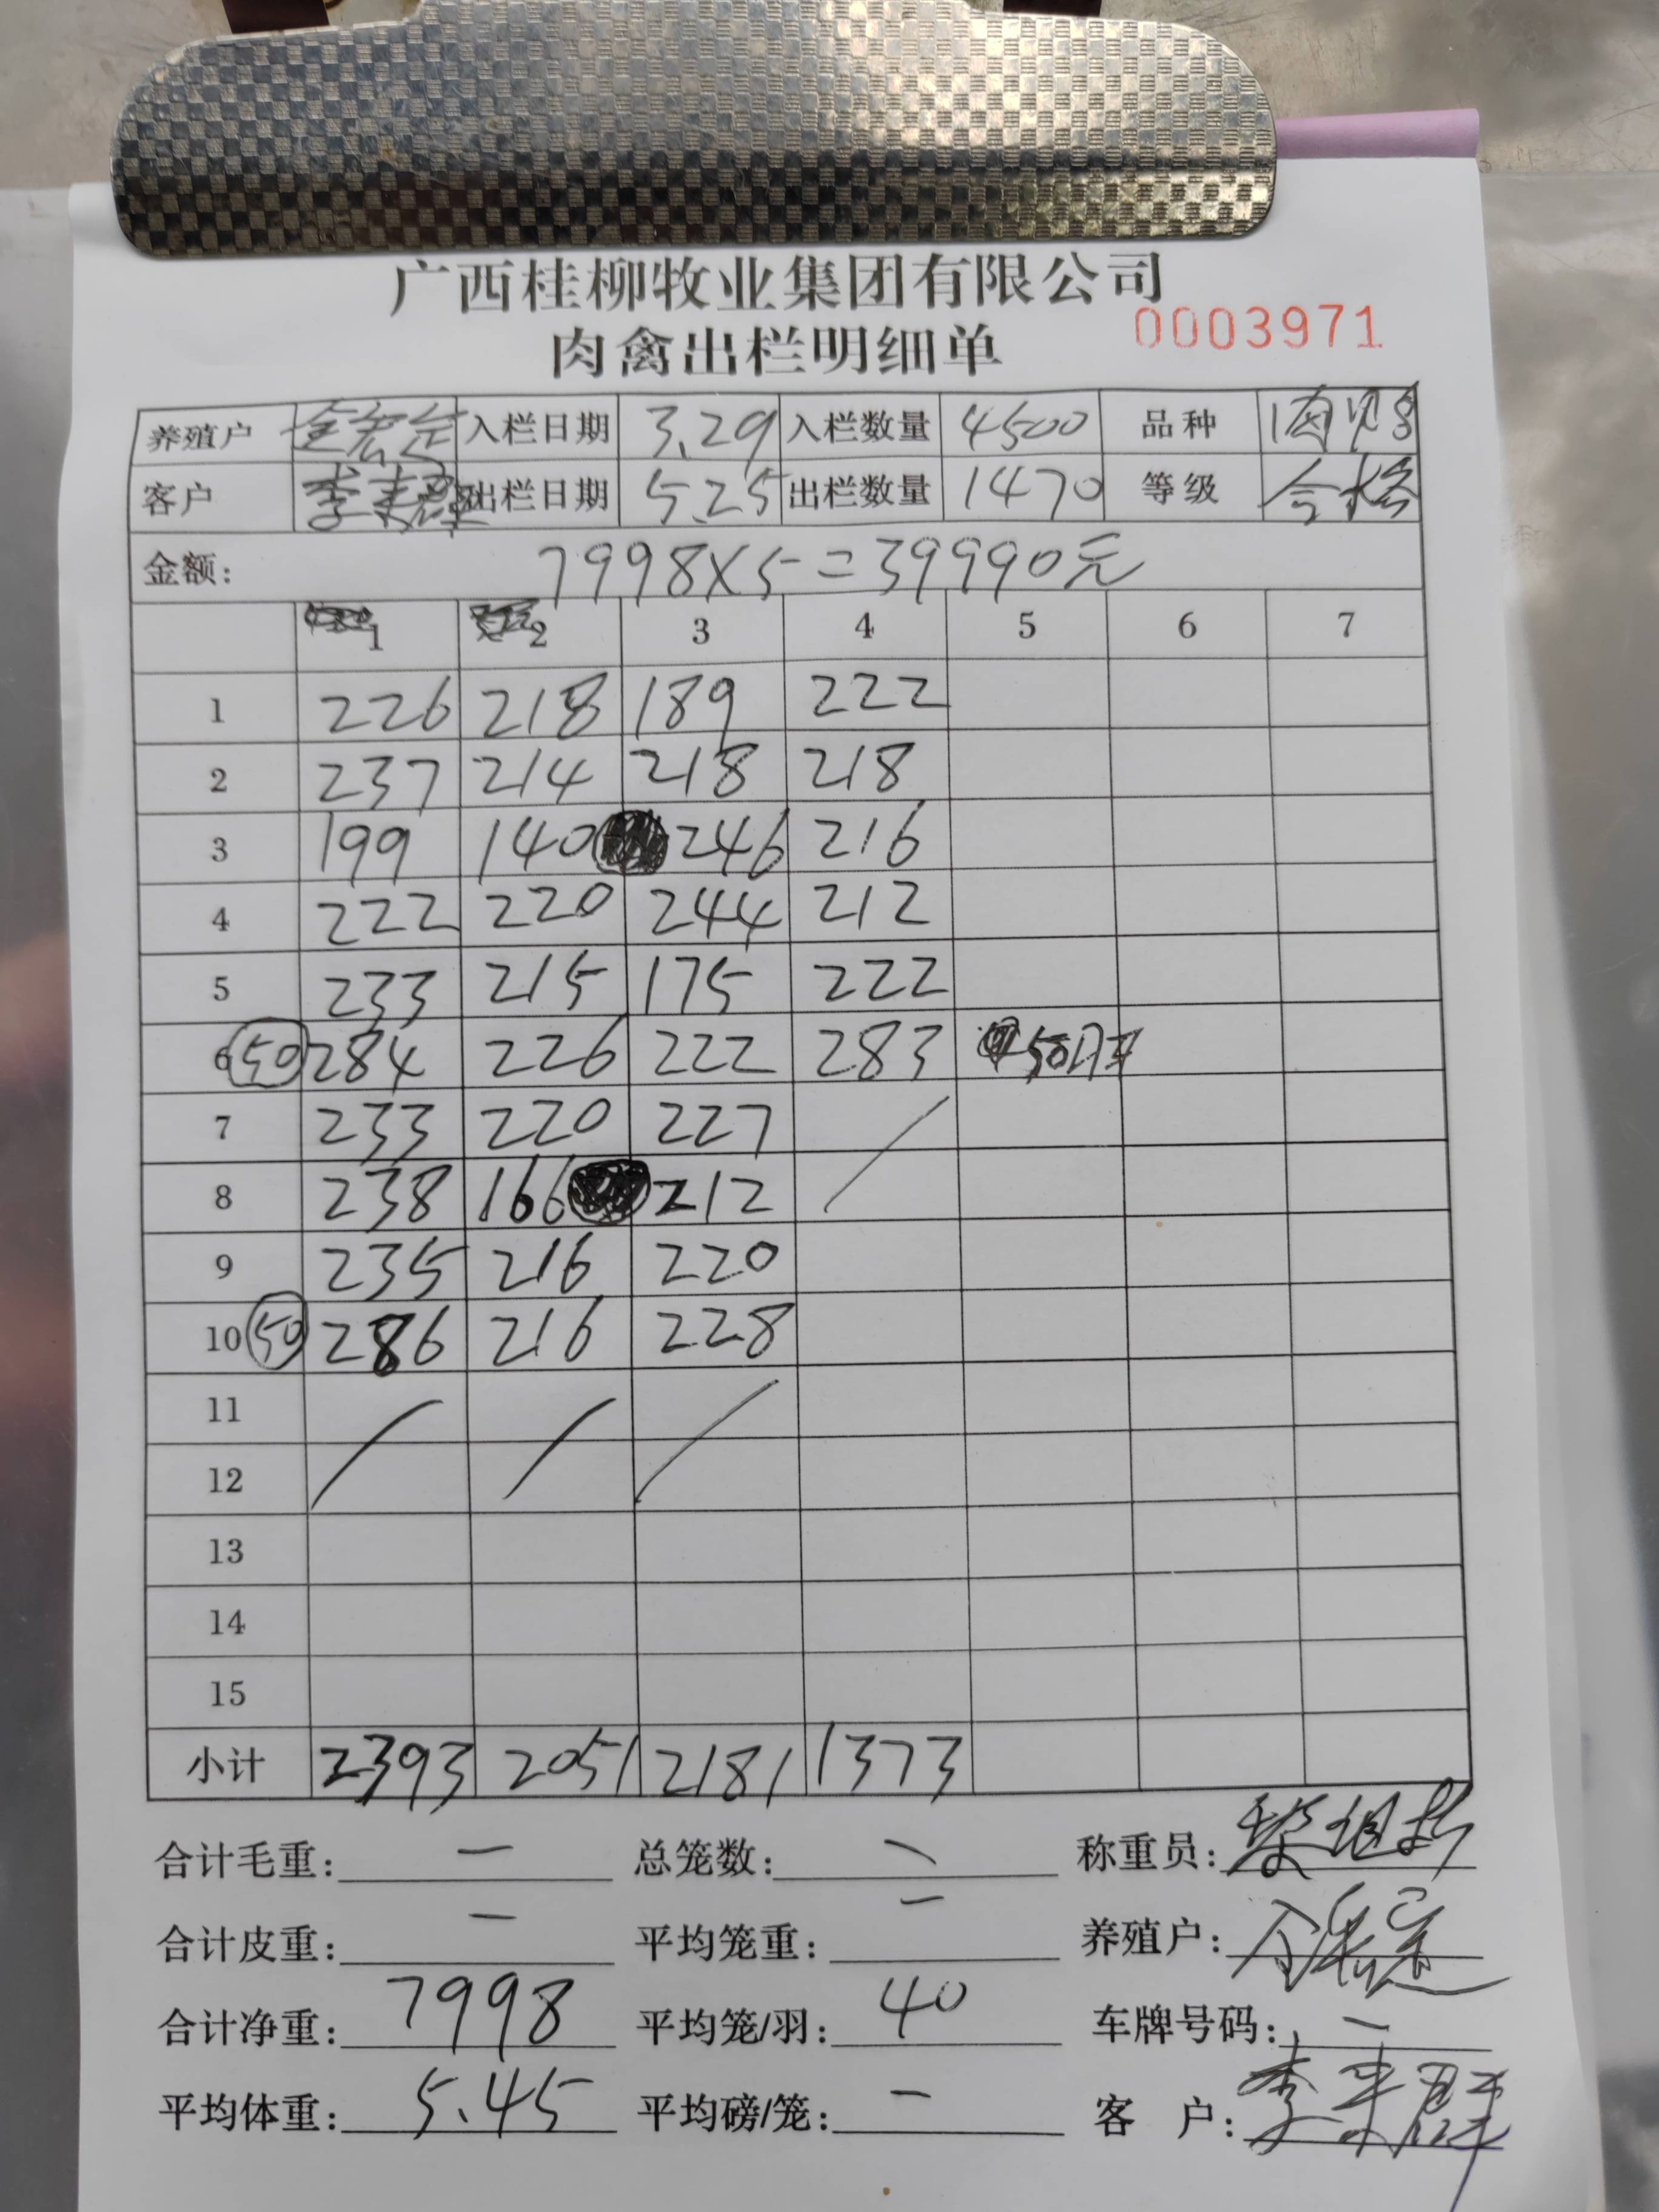 广西桂柳牧业集团有限公司
肉禽出栏明细单 0003971
养殖户 入栏日期 3.29 入栏数量 4500 品种
客户 李 出栏日期 5.25 出栏数量 1470 等级 合格
金额: 7998×5=39990元
1 2 3 4 5 6 7
1 226 218 189 222
2 237 214 218 218
3 199 140 246 216
4 222 220 244 212
5 233 215 175 222
6 50 284 226 222 283 50只
7 233 220 227
8 238 166 212
9 235 216 220
10 50 286 216 228
11
12
13
14
15
小计 2393 2051 2181 1373
合计毛重: — 总笼数: 称重员:
合计皮重: — 平均笼重: — 养殖户:
合计净重: 7998 平均笼/羽: 40 车牌号码: —
平均体重: 5.45 平均磅/笼: — 客户: 李